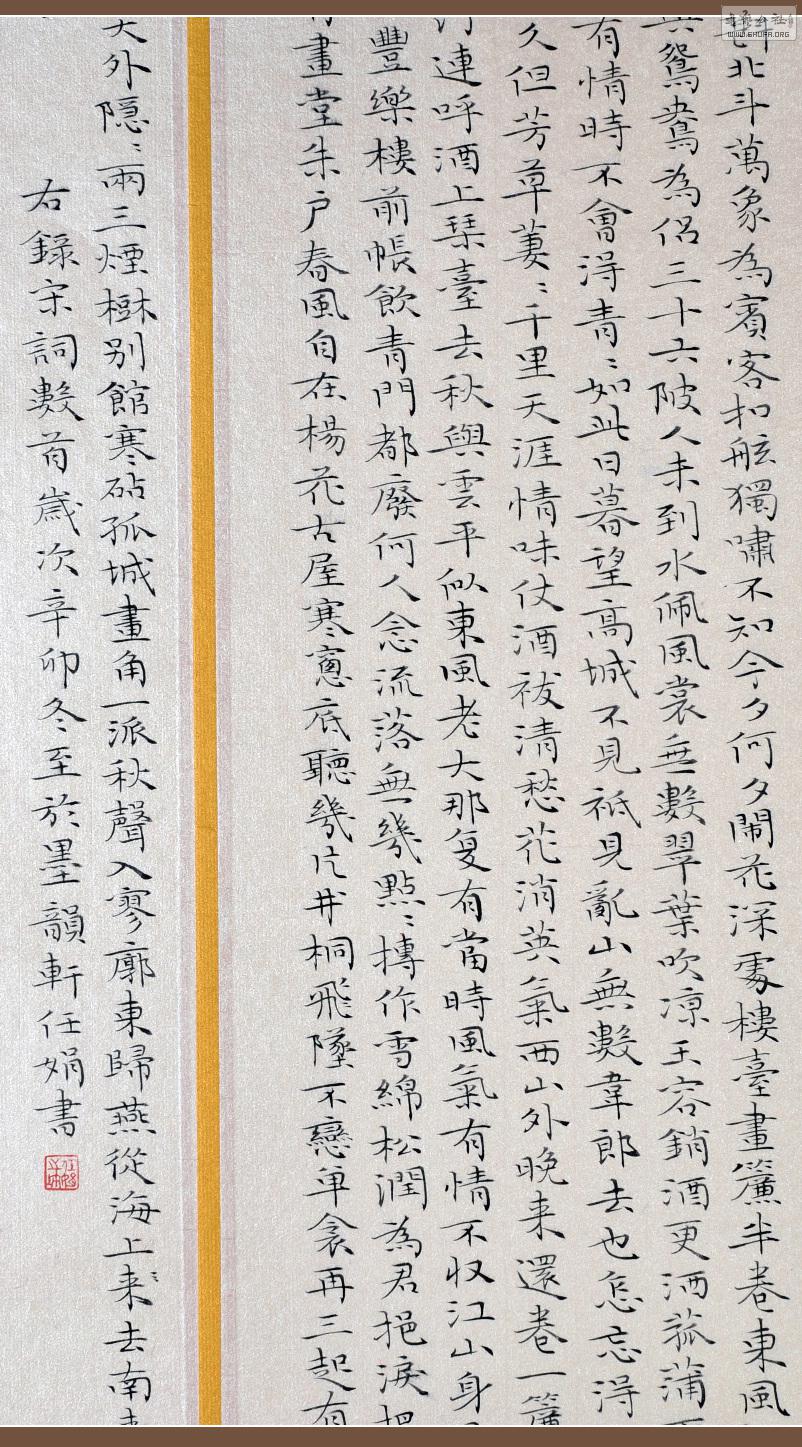 北斗萬象為賓客扣舷獨嘯不知今夕何夕閙花深處樓臺畫簾半卷東風
與鴛鴦為侶三十六陂人未到水佩風裳無數翠葉吹凉玉容銷酒更洒菰蒲
有情時不會得青〻如此日暮望高城不見祗見亂山無數韋郎去也怎忘得
久但芳草萋〻千里天涯情味仗酒祓清愁花消英氣西山外晚来還卷一簾
連呼酒上琹臺去秋與雲平似東風老大那复有當時風氣有情不收江山身
豐樂樓前帳飲青門都廢何人念流落無幾點〻摶作雪綿松潤為君挹淚
畫堂朱户春風自在楊花古屋寒窻底聽幾片井桐飛墜不戀单衾再三起有
天外隠〻兩三煙樹别館寒砧孤城畫角一派秋聲入寥廓東歸燕從海上来〻去南
右錄宋詞數首歲次辛卯冬至於墨韻軒任娟書
WWW.SHUFA.ORG